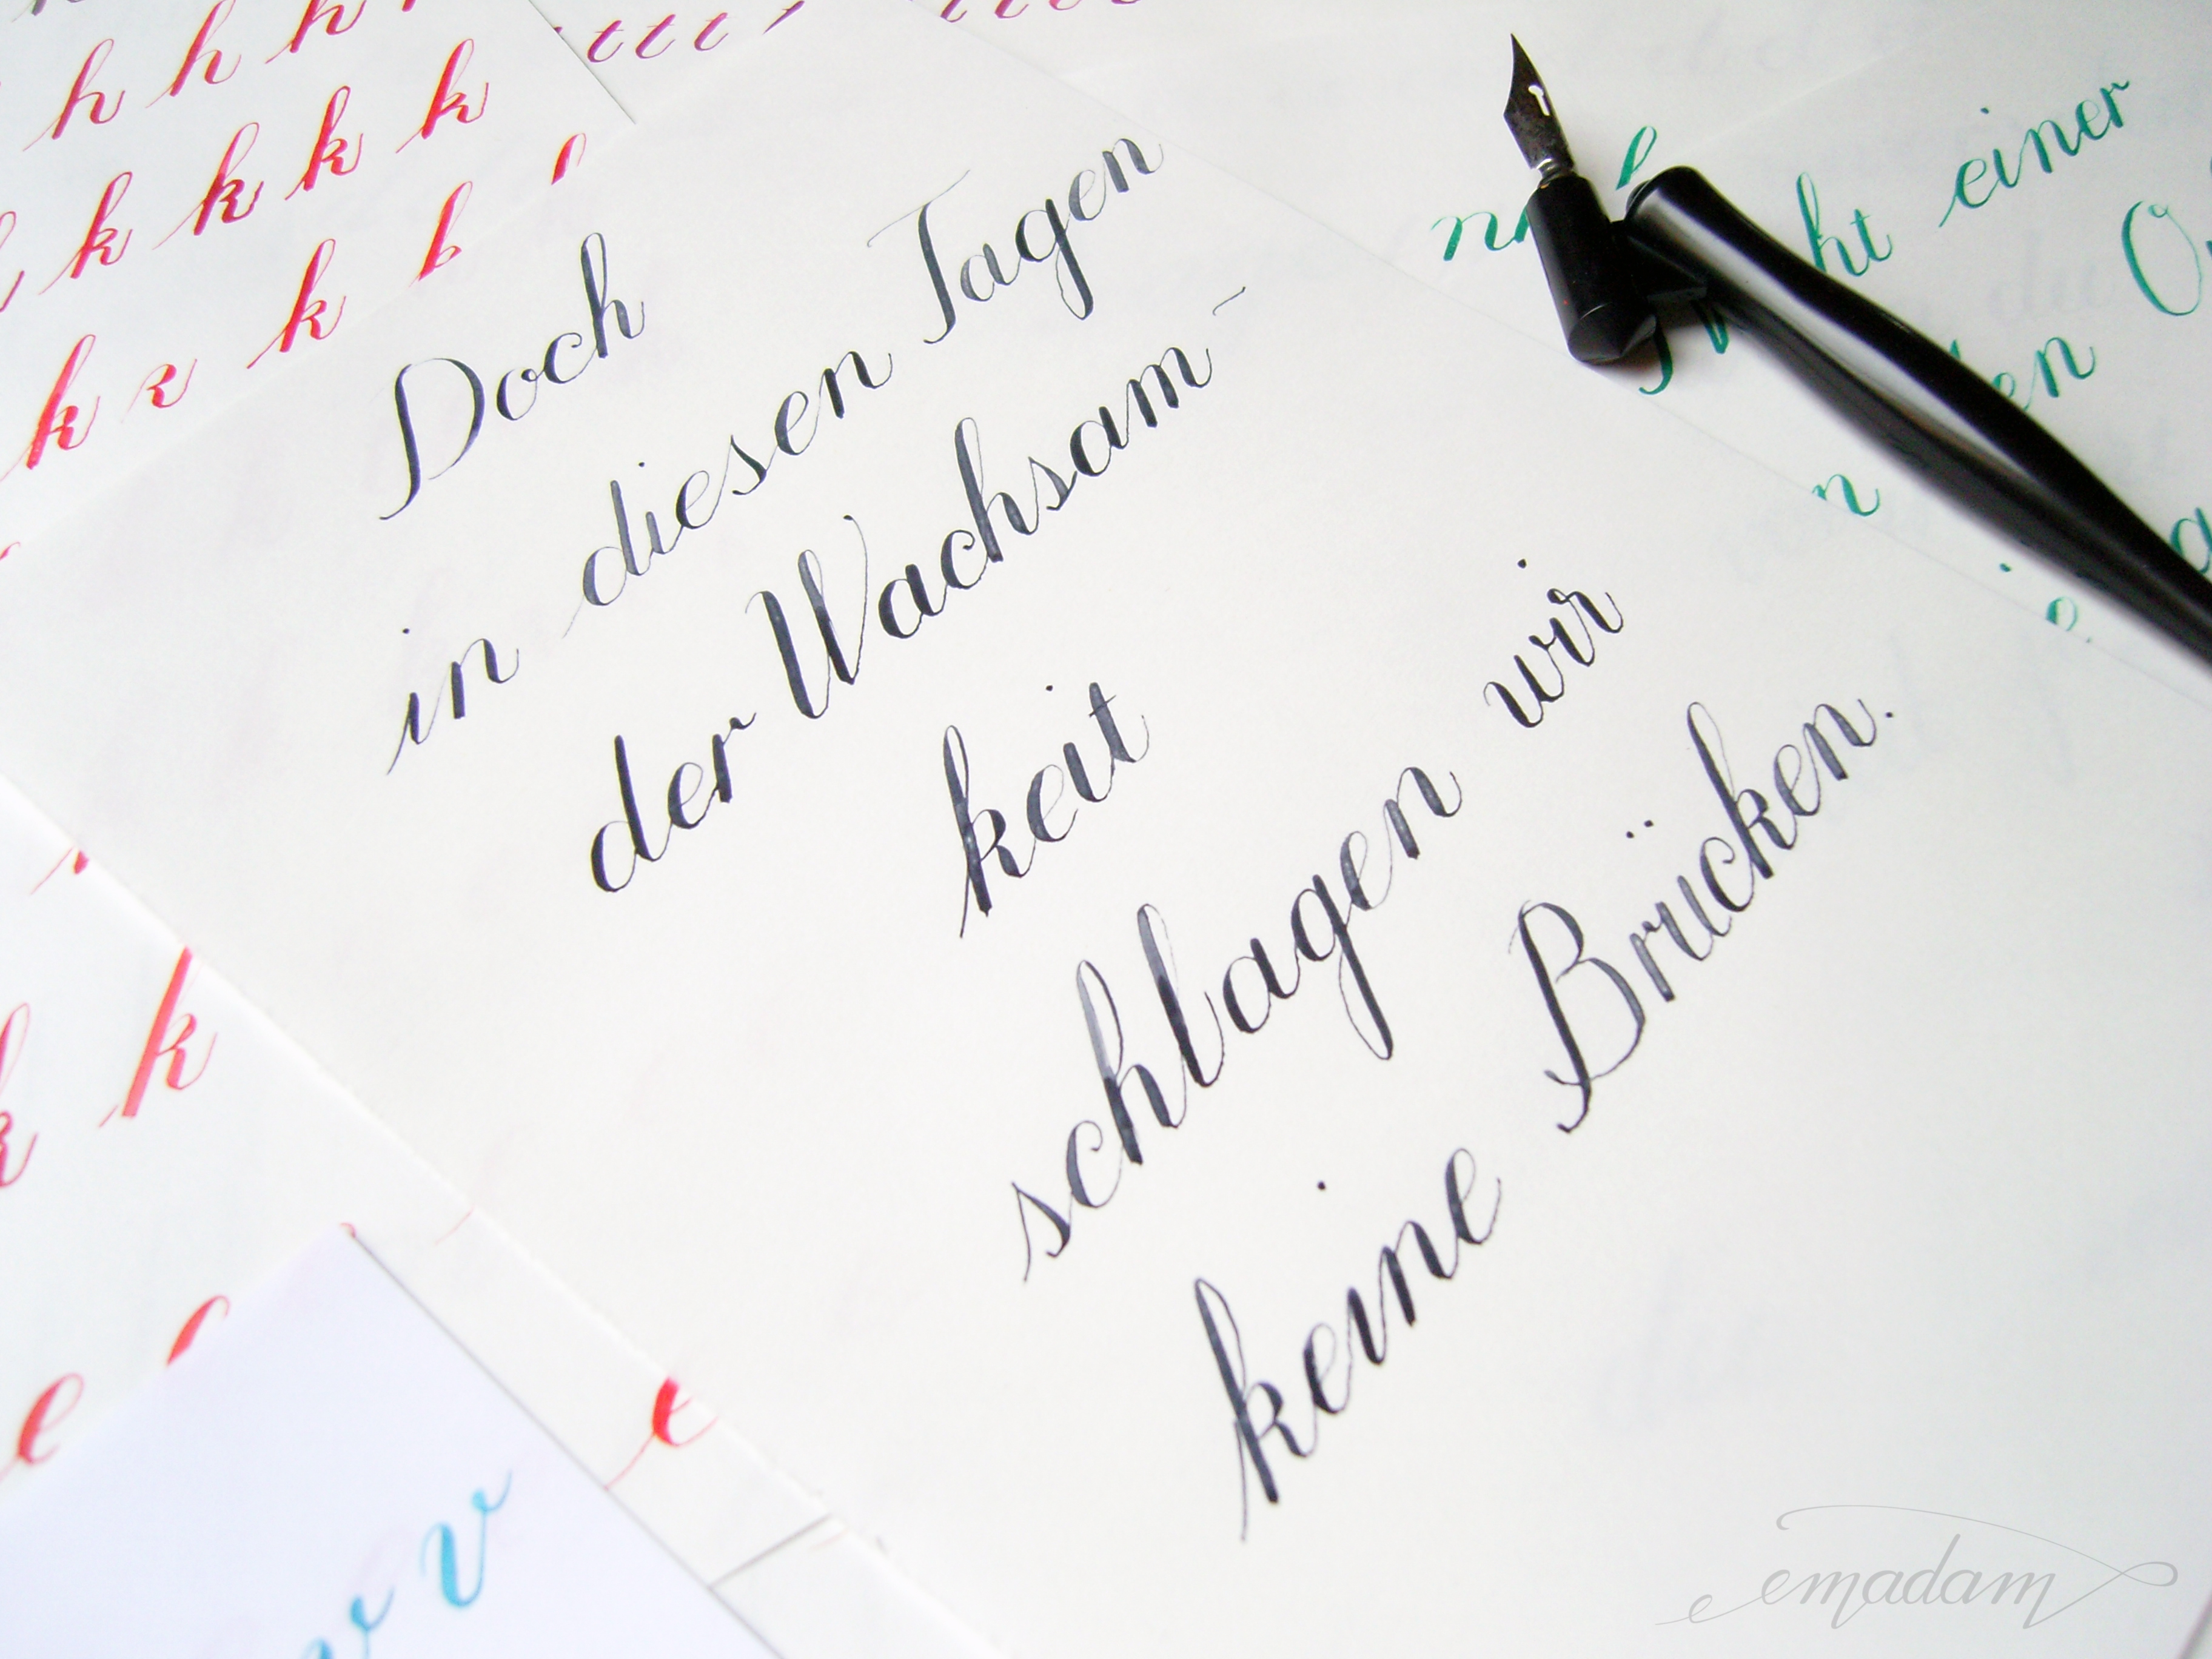 h h h
k k k k
k k k k b
k r k
Doch
in diesen Tagen
der Wachsam-
keit
schlagen wir
keine Brücken.
t t t
einer
n
k
e
e
v v
emadam